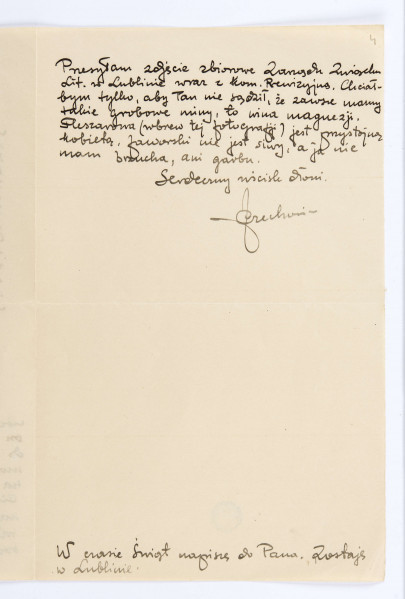 4
Przesyłam zdjęcie zbiorowe Zarządu Związku
Lit. w Lublinie wraz z Kom. Rewizyjną. Chciał-
bym tylko, aby Pan nie sądził, że zawsze mamy
takie grobowe miny, to wina magnezji.
Pleszarowa (wbrew tej fotografji) jest przystojną
kobietą, Jaworski nie jest siwy, a ja nie
mam brzucha, ani garbu.
Serdeczny uścisk dłoni.
JCzechowicz
W czasie Świąt napiszę do Pana. Zostaję
w Lublinie.